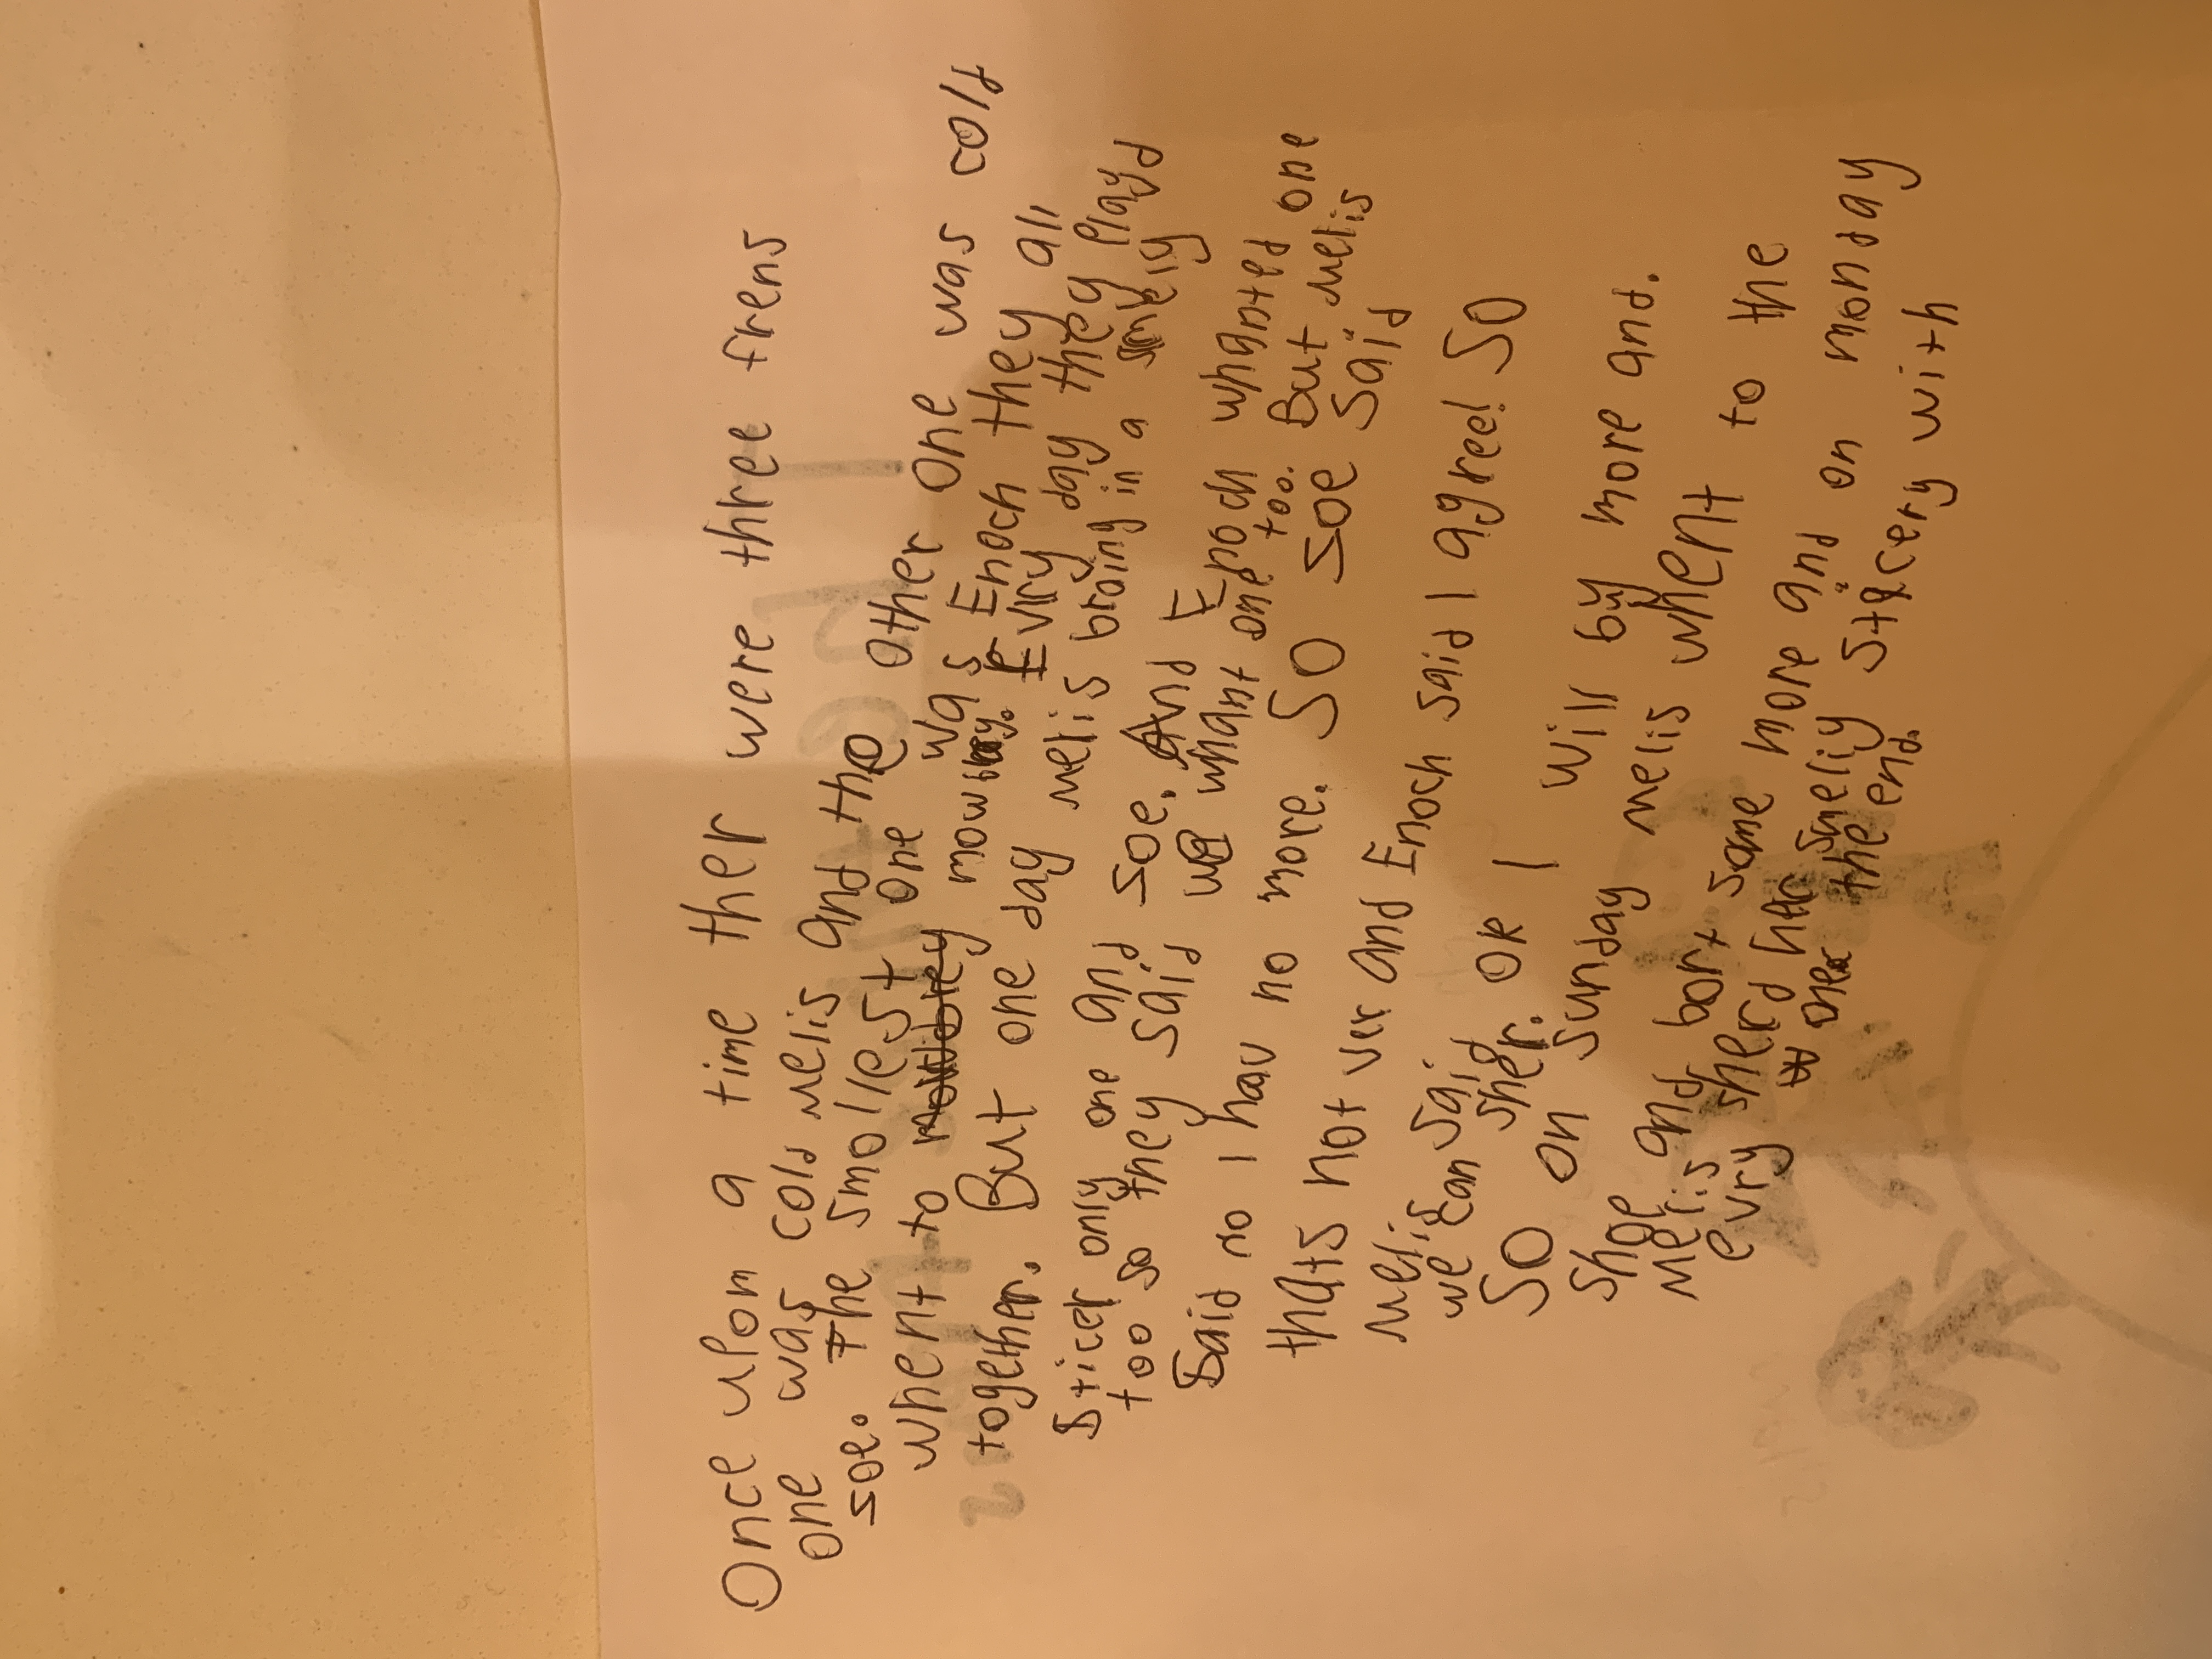 Once upom a time ther were three frens
one was cold Melis and the other one was cold
zoe. The smollest one was Enoch they all
whent to mowbrey mowbrey. Evry day they playd
together. But one day Melis broing in a smely
Sticer only one and zoe. And Enoch whanted one
too so they said we whant one too. But Melis
Said no I hav no more. So zoe said
thats not ver and Enoch said I agree! So
Melis said OK I will by more and.
we can sher.
So on sunday Melis whent to the
Shop and bort some more and on monday
Melis sherd her smeliy sticery with
evry one
the end.